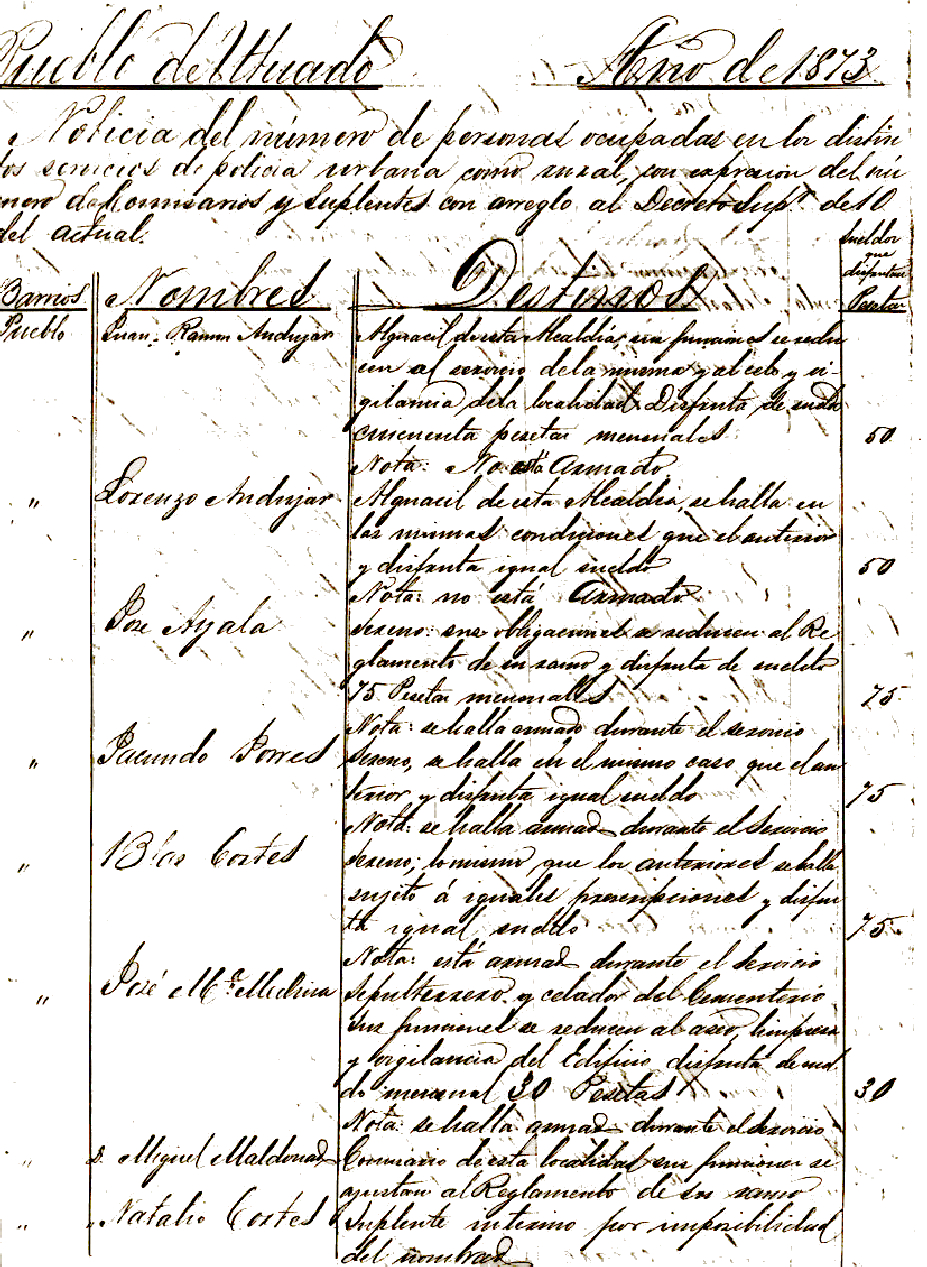 Pueblo de Utuado Año de 1873
Noticia del número de personas ocupadas en los distin
tos servicios de policia urbana como rural, con expresion del nú
mero de Comisarios y Suplentes con arreglo al Decreto Supr. de 10
del actual.
Sueldos
que
disfrutan
Barrios Nombres Destinos Pesetas
Pueblo Juan Ramon Andujar Alguacil de esta Alcaldia, sus funciones se redu
cen al servicio de la misma y al celo y vi-
gilancia de la localidad. Disfruta de sueldo
cincuenta pesetas mensuales 50
Nota: No está armado
" Lorenzo Andujar Alguacil de esta Alcaldia, se halla en
las mismas condiciones que el anterior
y disfruta igual sueldo 50
Nota: no está armado
" Jose Ayala Sereno: sus obligaciones se reducen al Re
glamento de su ramo y disfruta de sueldo
75 Pesetas mensuales 75
Nota: se halla armado durante el servicio
" Facundo Torres Sereno, se halla en el mismo caso que el an
terior y disfruta igual sueldo 75
Nota: se halla armado durante el Servicio
" Blas Cortes Sereno; lo mismo que los anteriores se halla
sujeto á iguales prescripciones y disfru
ta igual sueldo 75
Nota: está armado durante el Servicio
" José Ma. Medina Sepulturero y celador del Cementerio
sus funciones se reducen al aseo, limpieza
y vigilancia del Edificio disfruta de suel
do mensual 30 Pesetas 30
Nota: se halla armado durante el servicio
" D. Miguel Maldonado Comisario de esta localidad sus funciones se
ajustan al Reglamento de su ramo
" " Natalio Cortes Suplente interino por imposibilidad
del nombrado